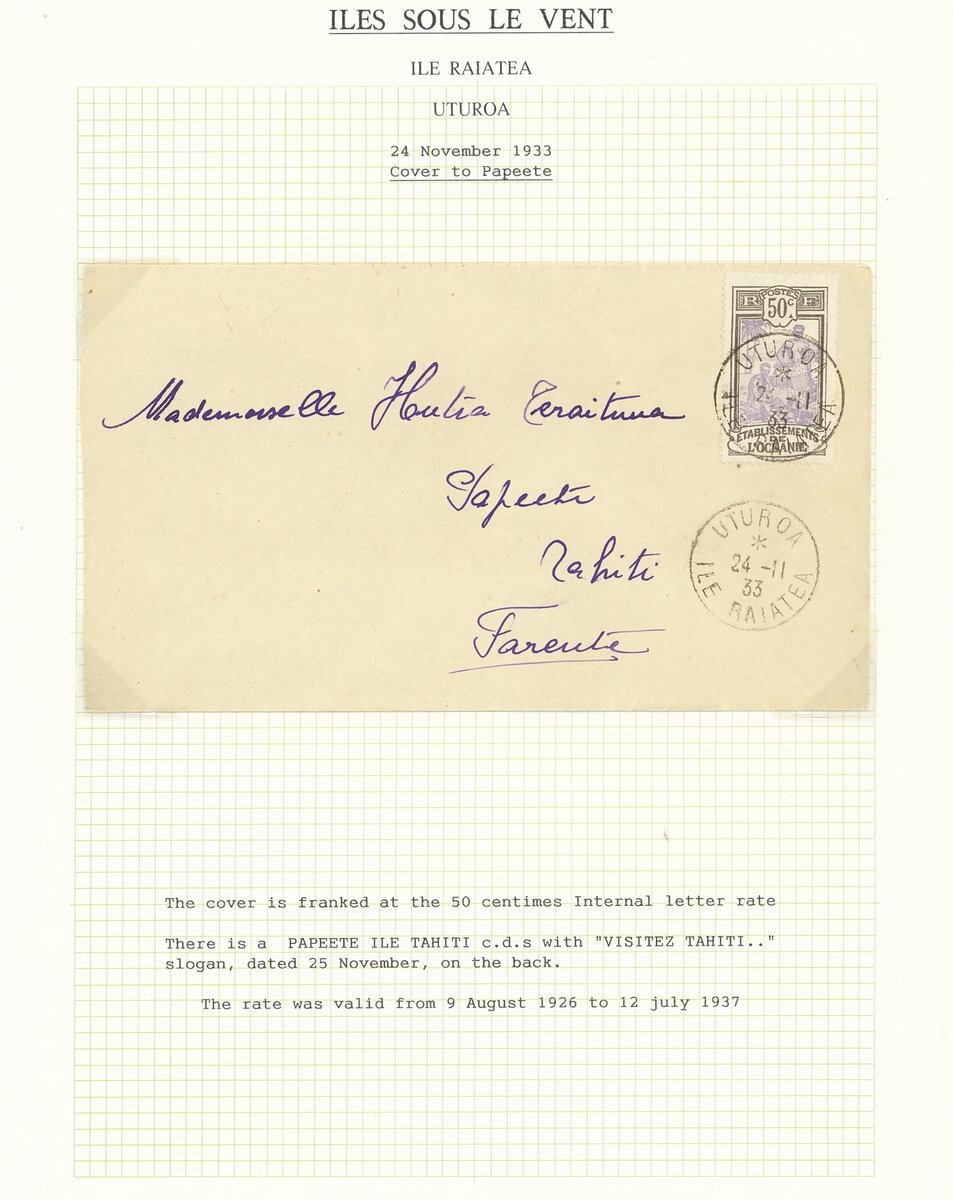 ILES SOUS LE VENT
ILE RAIATEA
UTUROA
24 November 1933
Cover to Papeete
POSTES
R F
50c
UTUROA
ILE RAIATEA
2 -11
33
ETABLISSEMENTS
DE
L'OCÉANIE
Mademoiselle Hutia Teraituua
Papeete
Tahiti
Farente
UTUROA
24 -11
33
ILE RAIATEA
The cover is franked at the 50 centimes Internal letter rate
There is a PAPEETE ILE TAHITI c.d.s with "VISITEZ TAHITI.."
slogan, dated 25 November, on the back.
The rate was valid from 9 August 1926 to 12 july 1937